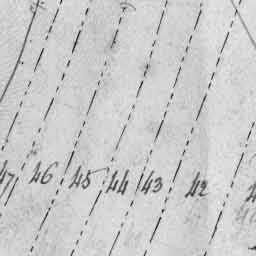 47 46 45 44 43 42